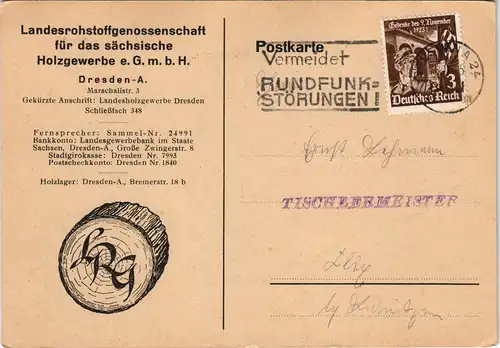 Landesrohstoffgenossenschaft
für das sächsische
Holzgewerbe e. G. m. b. H.
Dresden-A.
Marschallstr. 3
Gekürzte Anschrift: Landesholzgewerbe Dresden
Schließfach 348
Fernsprecher: Sammel-Nr. 24991
Bankkonto: Landesgewerbebank im Staate
Sachsen, Dresden-A., Große Zwingerstr. 8
Stadtgirokasse: Dresden Nr. 7993
Postscheckkonto: Dresden Nr. 1840
Holzlager: Dresden-A., Bremerstr. 18 b
LRG
Postkarte
Vermeidet
RUNDFUNK=
STÖRUNGEN!
Gedenke des 9. November
1923!
3
Deutsches Reich
24
Ernst Lehmann
TISCHLERMEISTER